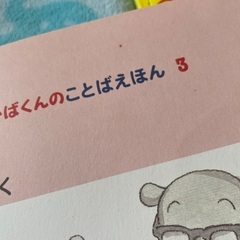 ばくんのことばえほん 3
く